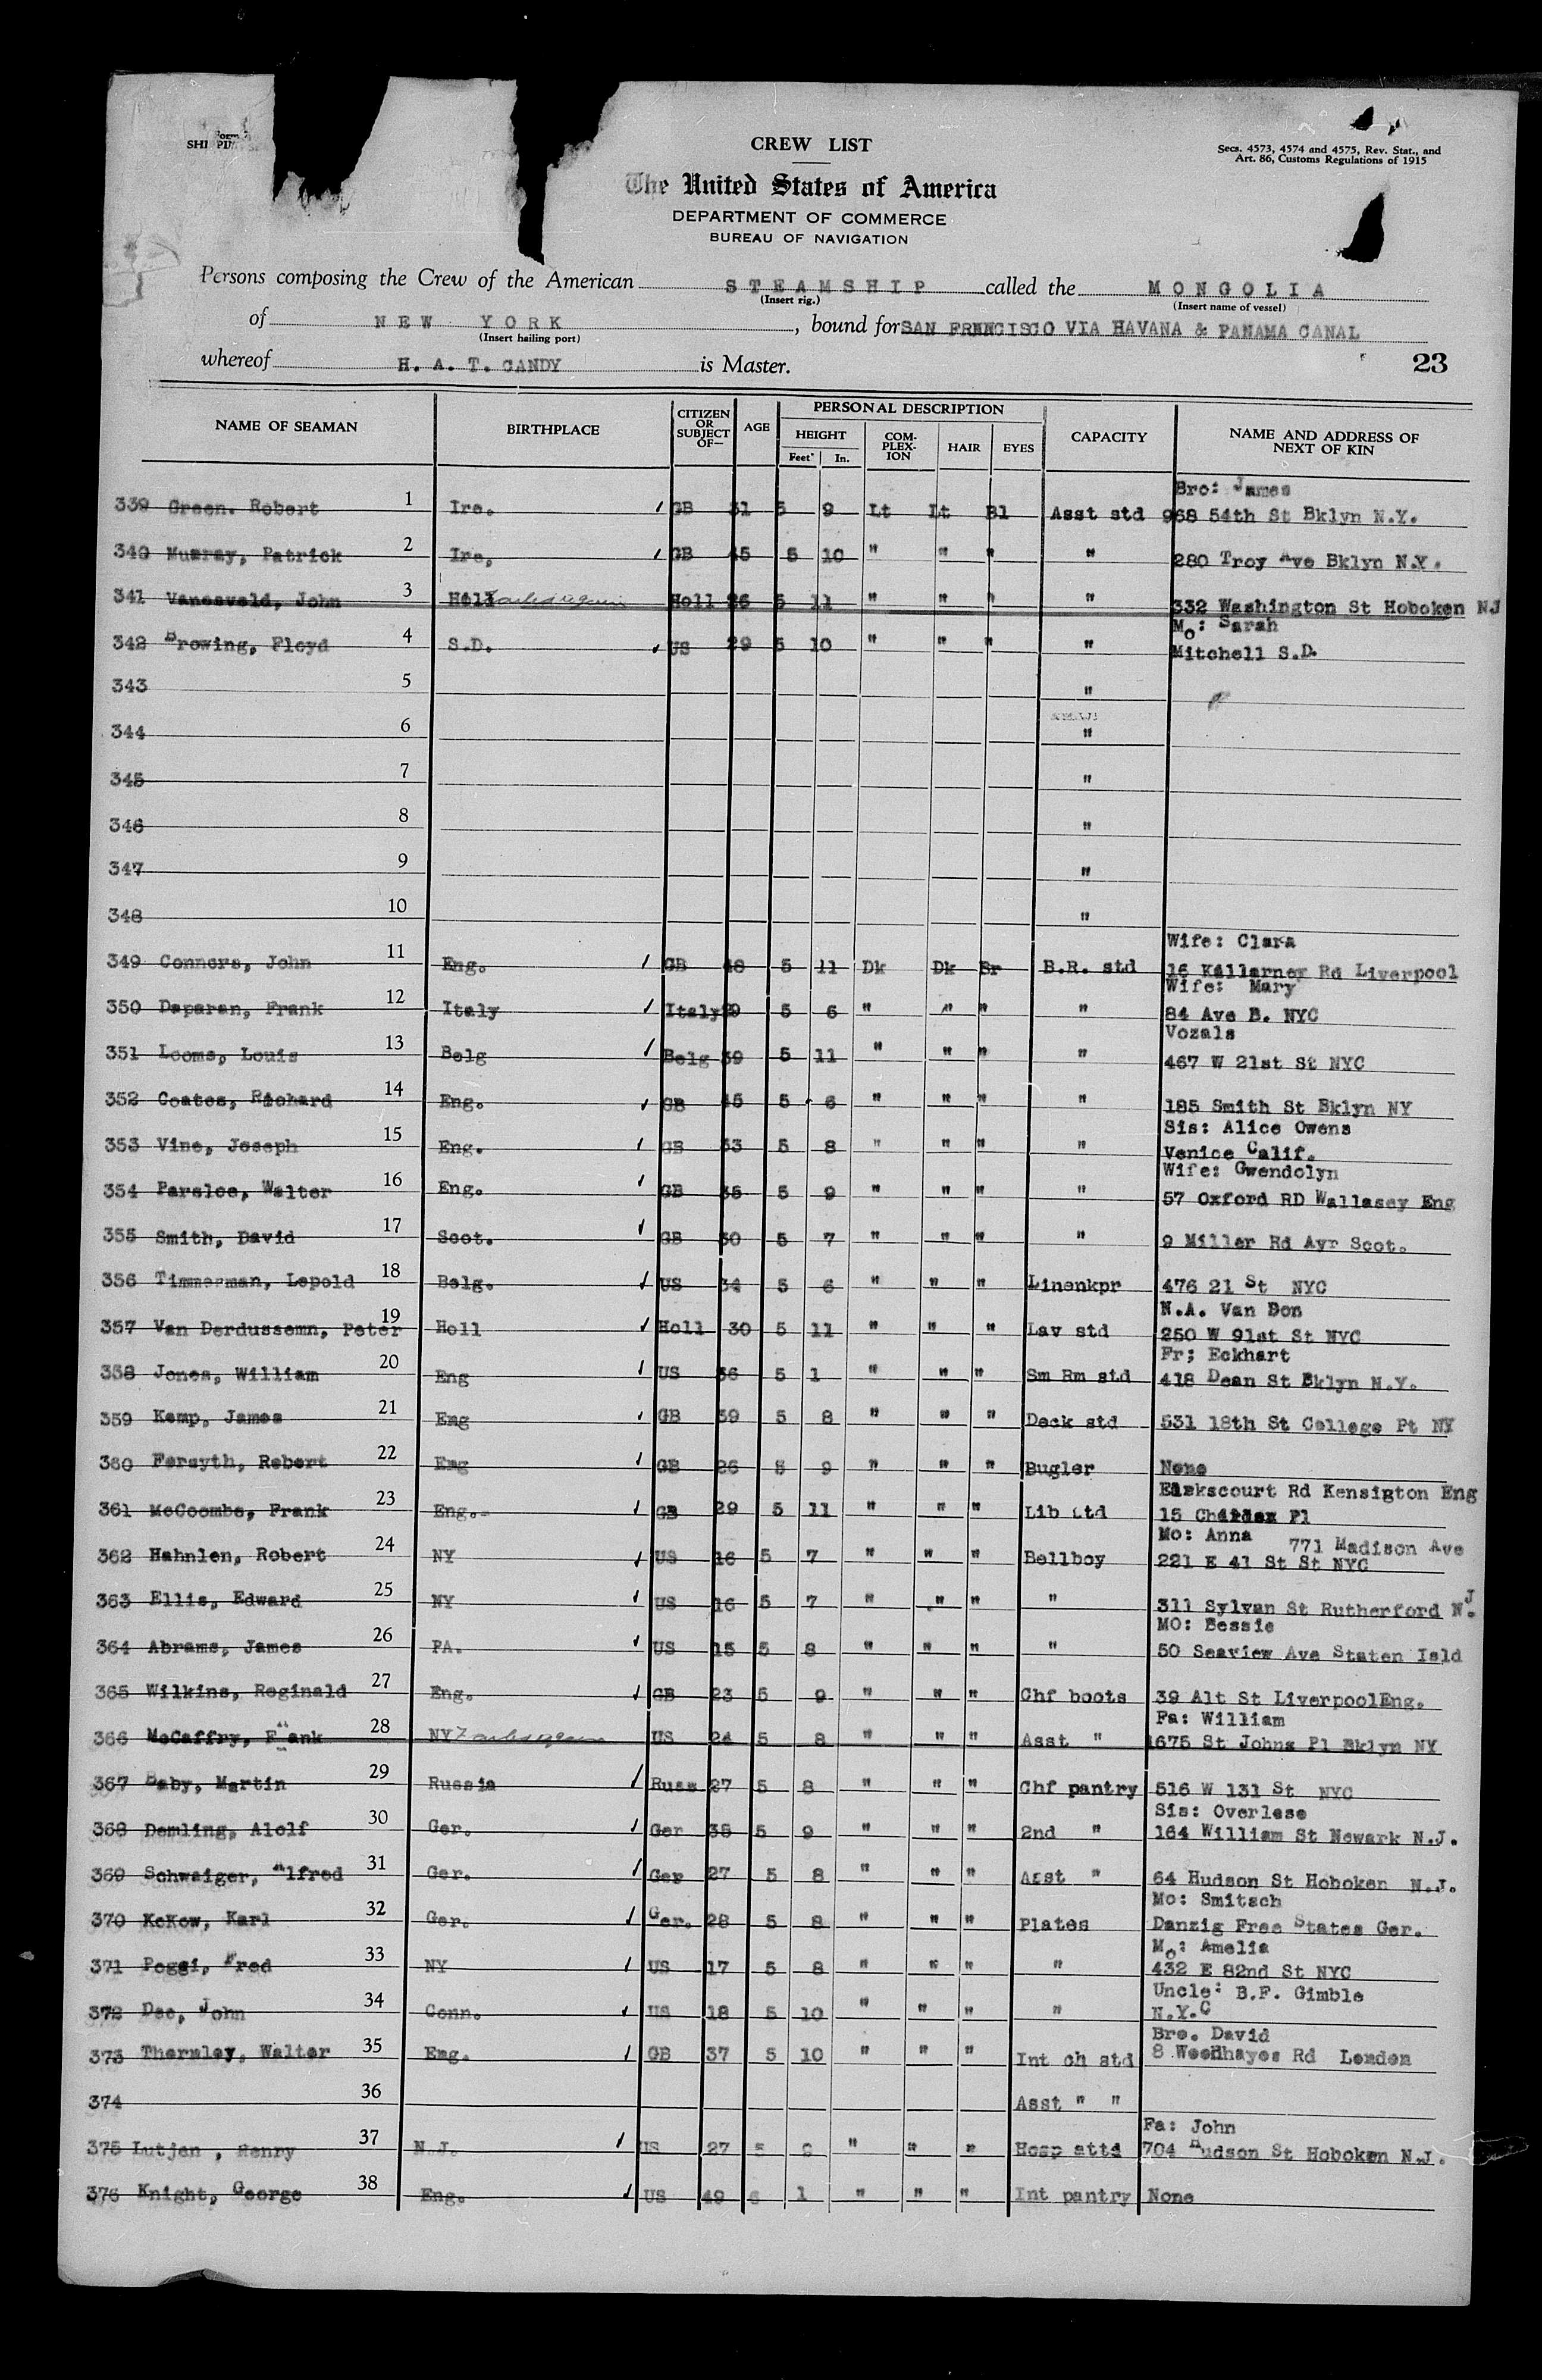 Form
SHIPPIN
CREW LIST
Secs. 4573, 4574 and 4575, Rev. Stat., and
Art. 86, Customs Regulations of 1915
The United States of America
DEPARTMENT OF COMMERCE
BUREAU OF NAVIGATION
Persons composing the Crew of the American STEAMSHIP called the MONGOLIA
(Insert rig.) (Insert name of vessel)
of NEW YORK, bound for SAN FRANCISCO VIA HAVANA & PANAMA CANAL
(Insert hailing port)
whereof H. A. T. CANDY is Master.
23
NAME OF SEAMAN BIRTHPLACE CITIZEN OR SUBJECT OF— AGE PERSONAL DESCRIPTION CAPACITY NAME AND ADDRESS OF NEXT OF KIN
HEIGHT COM-PLEX-ION HAIR EYES
Feet In.
Bro: James
339 Green. Robert 1 Ire. GB 31 5 9 Lt Lt Bl Asst std 968 54th St Bklyn N.Y.
340 Murray, Patrick 2 Ire, GB 45 5 10 " " " " 280 Troy Ave Bklyn N.Y.
341 Vanesveld, John 3 Holl Failed to join Holl 26 5 11 " " " " 332 Washington St Hoboken NJ
Mo: Sarah
342 Browing, Floyd 4 S.D. US 29 5 10 " " " " Mitchell S.D.
343 5 "
344 6 "
345 7 "
346 8 "
347 9 "
348 10 "
Wife: Clara
349 Conners, John 11 Eng. GB 48 5 11 Dk Dk Br B.R. std 16 Killarney Rd Liverpool
Wife: Mary
350 Daparan, Frank 12 Italy Italy 29 5 6 " " " " 84 Ave B. NYC
Vozals
351 Looms, Louis 13 Belg Belg 39 5 11 " " " " 467 W 21st St NYC
352 Coates, Richard 14 Eng. GB 45 5 6 " " " " 185 Smith St Bklyn NY
Sis: Alice Owens
353 Vine, Joseph 15 Eng. GB 33 5 8 " " " " Venice Calif.
Wife: Gwendolyn
354 Parsloe, Walter 16 Eng. GB 35 5 9 " " " " 57 Oxford RD Wallasey Eng
355 Smith, David 17 Scot. GB 30 5 7 " " " " 9 Miller Rd Ayr Scot.
356 Timmerman, Lepold 18 Belg. US 34 5 6 " " " Linenkpr 476 21 St NYC
N.A. Van Don
357 Van Derdussemn, Peter 19 Holl Holl 30 5 11 " " " Lav std 250 W 91st St NYC
Fr; Eckhart
358 Jones, William 20 Eng US 36 5 1 " " " Sm Rm std 418 Dean St Bklyn N.Y.
359 Kemp, James 21 Eng GB 39 5 8 " " " Deck std 531 18th St College Pt NY
360 Forsyth, Robert 22 Eng GB 26 5 9 " " " Bugler None
Earkscourt Rd Kensigton Eng
361 McCoombs, Frank 23 Eng. GB 29 5 11 " " " Lib std 15 Pl
Mo: Anna 771 Madison Ave
362 Hahnlen, Robert 24 NY US 16 5 7 " " " Bellboy 221 E 41 St St NYC
363 Ellis, Edward 25 NY US 16 5 7 " " " " 311 Sylvan St Rutherford N.J
MO: Bessie
364 Abrams, James 26 PA. US 15 5 8 " " " " 50 Seaview Ave Staten Isld
365 Wilkins, Reginald 27 Eng. GB 23 5 9 " " " Chf boots 39 Alt St LiverpoolEng.
Fa: William
366 McCaffry, Frank 28 NY Failed to join US 24 5 8 " " " Asst " 1675 St Johns Pl Bklyn NY
367 Baby, Martin 29 Russia Russ 27 5 8 " " " Chf pantry 516 W 131 St NYC
Sis: Overlese
368 Demling, Alolf 30 Ger. Ger 35 5 9 " " " 2nd " 164 William St Newark N.J.
369 Schwaiger, Alfred 31 Ger. Ger 27 5 8 " " " Asst " 64 Hudson St Hoboken N.J.
Mo: Smitsch
370 KcKow, Karl 32 Ger. Ger. 28 5 8 " " " Plates Danzig Free States Ger.
Mo: Amelia
371 Poggi, Fred 33 NY US 17 5 8 " " " " 432 E 82nd St NYC
Uncle: B.F. Gimble
372 Dee, John 34 Conn. US 18 5 10 " " " " N.Y.C
Bro. David
373 Thormley, Walter 35 Eng. GB 37 5 10 " " " Int ch std 8 Woodhayes Rd London
374 36 Asst " "
Fa: John
375 Lutjen , Henry 37 N.J. US 27 5 " " " Hosp attd 704 Hudson St Hoboken N.J.
376 Knight, George 38 Eng. US 49 6 1 " " " Int pantry None